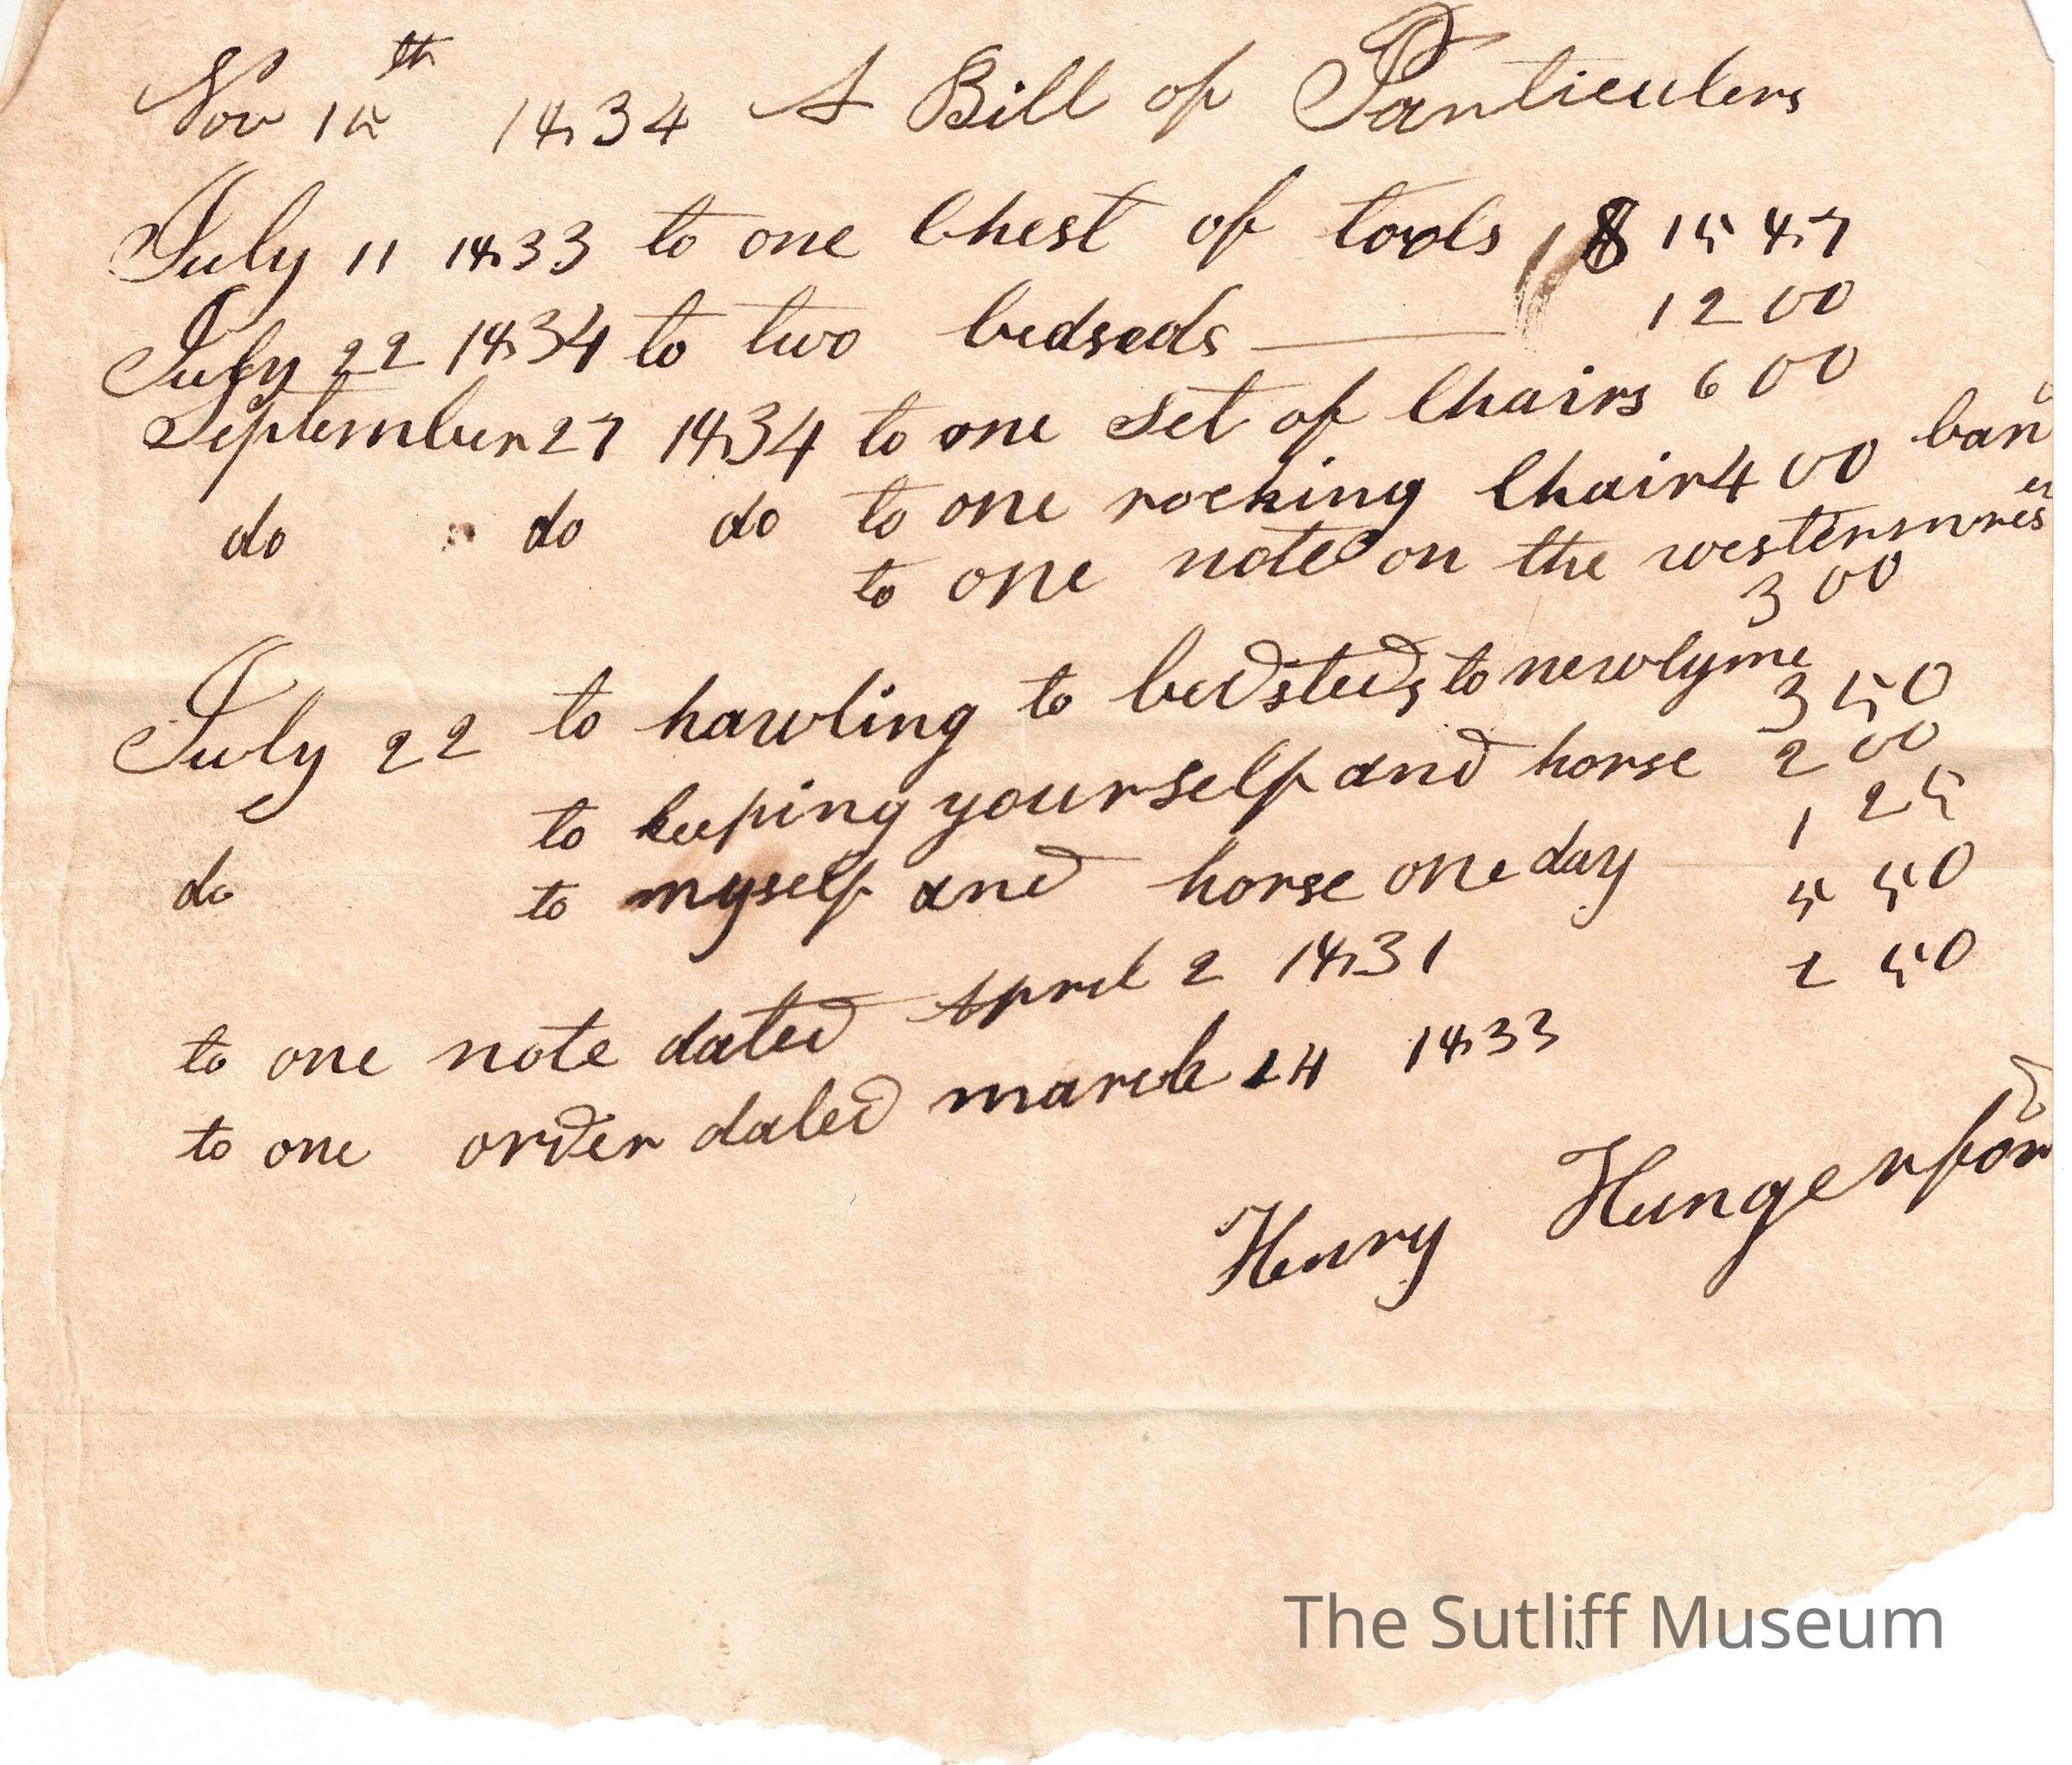 Nov 15th 1834 A Bill of Particulers
July 11 1833 to one Chest of tools $ 15 47
July 22 1834 to two bedseds 12 00
September 27 1834 to one set of Chairs 6 00
do do do to one rocking Chair 4 00
to one note on the western
3 00
July 22 to hawling to bedsteds to newlyme 3 50
to keeping yourself and horse 2 00
do to myself and horse one day 1 25
to one note dated April 2 1831 5 50
to one order dated march 24 1833 2 50
Henry Hungerford
The Sutliff Museum